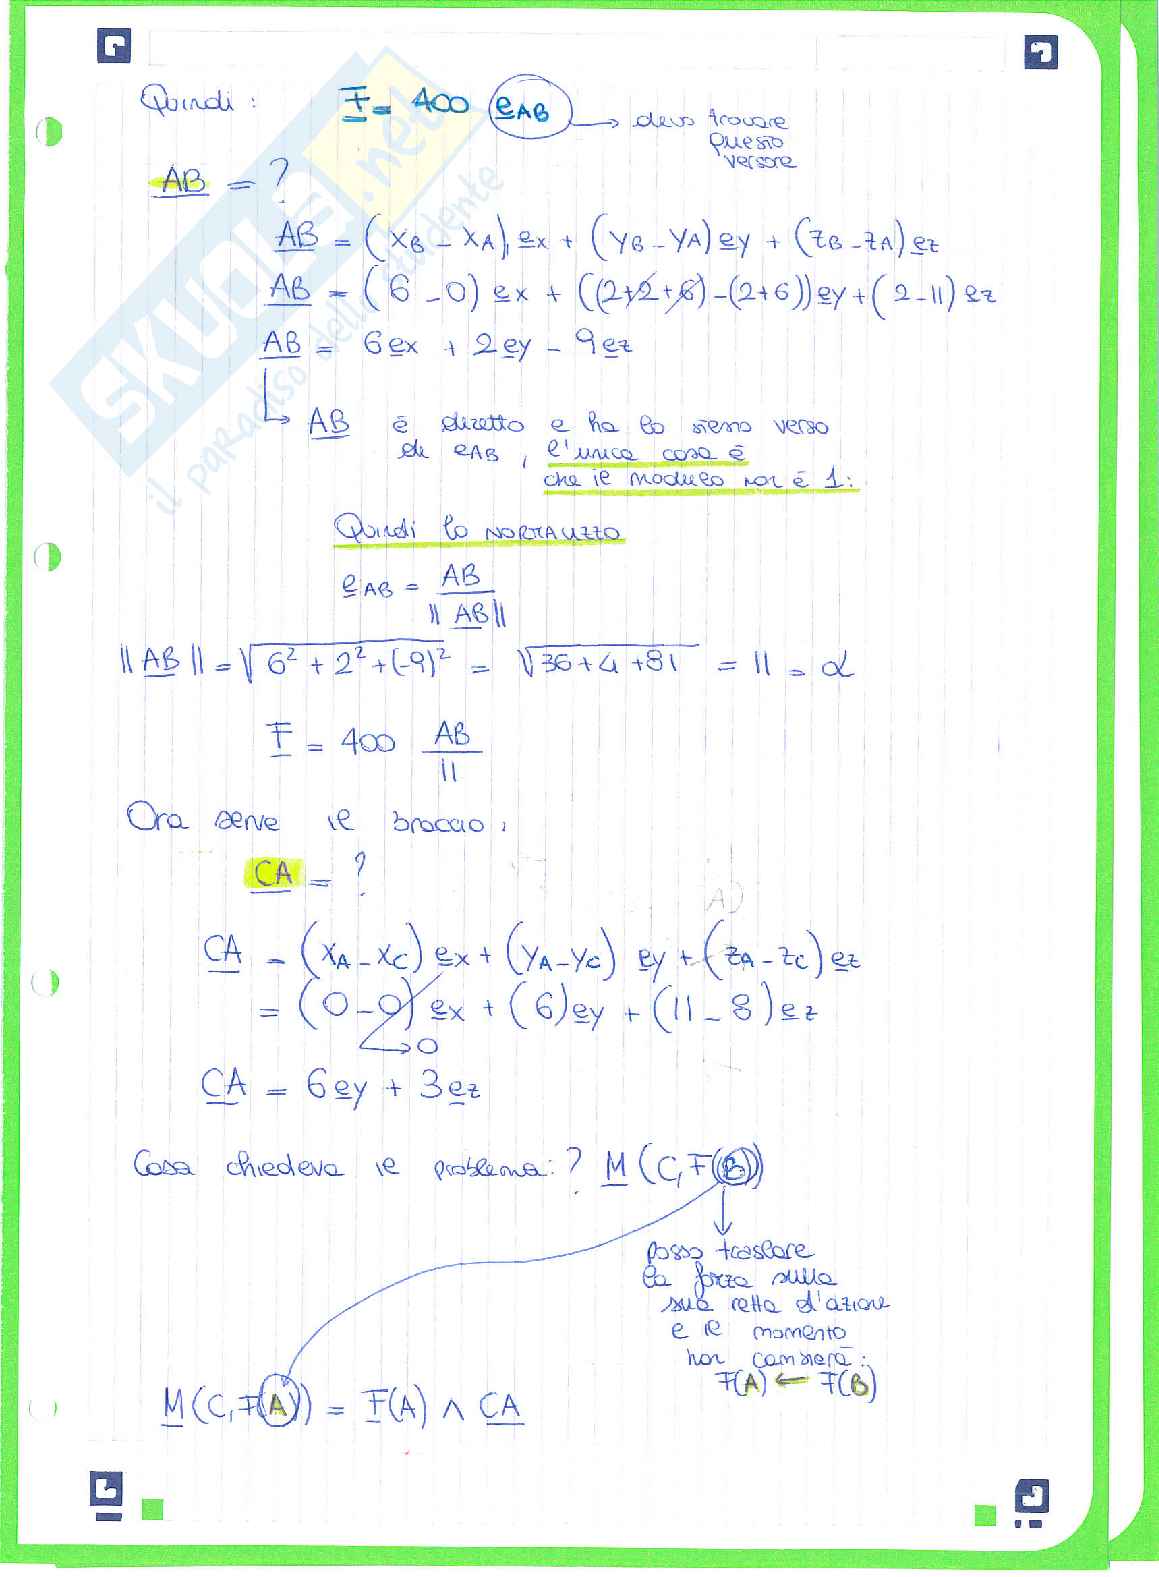 Quindi: F = 400 eAB → devo trovare
questo
versore
AB = ?
AB = (xB - xA) ex + (yB - yA) ey + (zB - zA) ez
AB = (6 - 0) ex + ((2+2+6) - (2+6)) ey + (2 - 11) ez
AB = 6ex + 2ey - 9ez
AB è diretto e ha lo stesso verso
di eAB, l'unica cosa è
che il modulo non è 1:
Quindi lo NORMALIZZO
eAB = AB / ||AB||
||AB|| = √(6² + 2² + (-9)²) = √(36 + 4 + 81) = 11 = α
F = 400 AB / 11
Ora serve il braccio:
CA = ?
A)
CA = (xA - xC) ex + (yA - yC) ey + (zA - zC) ez
= (0 - 0) ex + (6) ey + (11 - 8) ez
→ 0
CA = 6ey + 3ez
Cosa chiedeva il problema: ? M (C, F(B))
posso traslare
la forza sulla
sua retta d'azione
e il momento
non cambierà:
F(A) ← F(B)
M (C, F(A)) = F(A) ∧ CA
SKUOLA.net
il paradiso dello studente